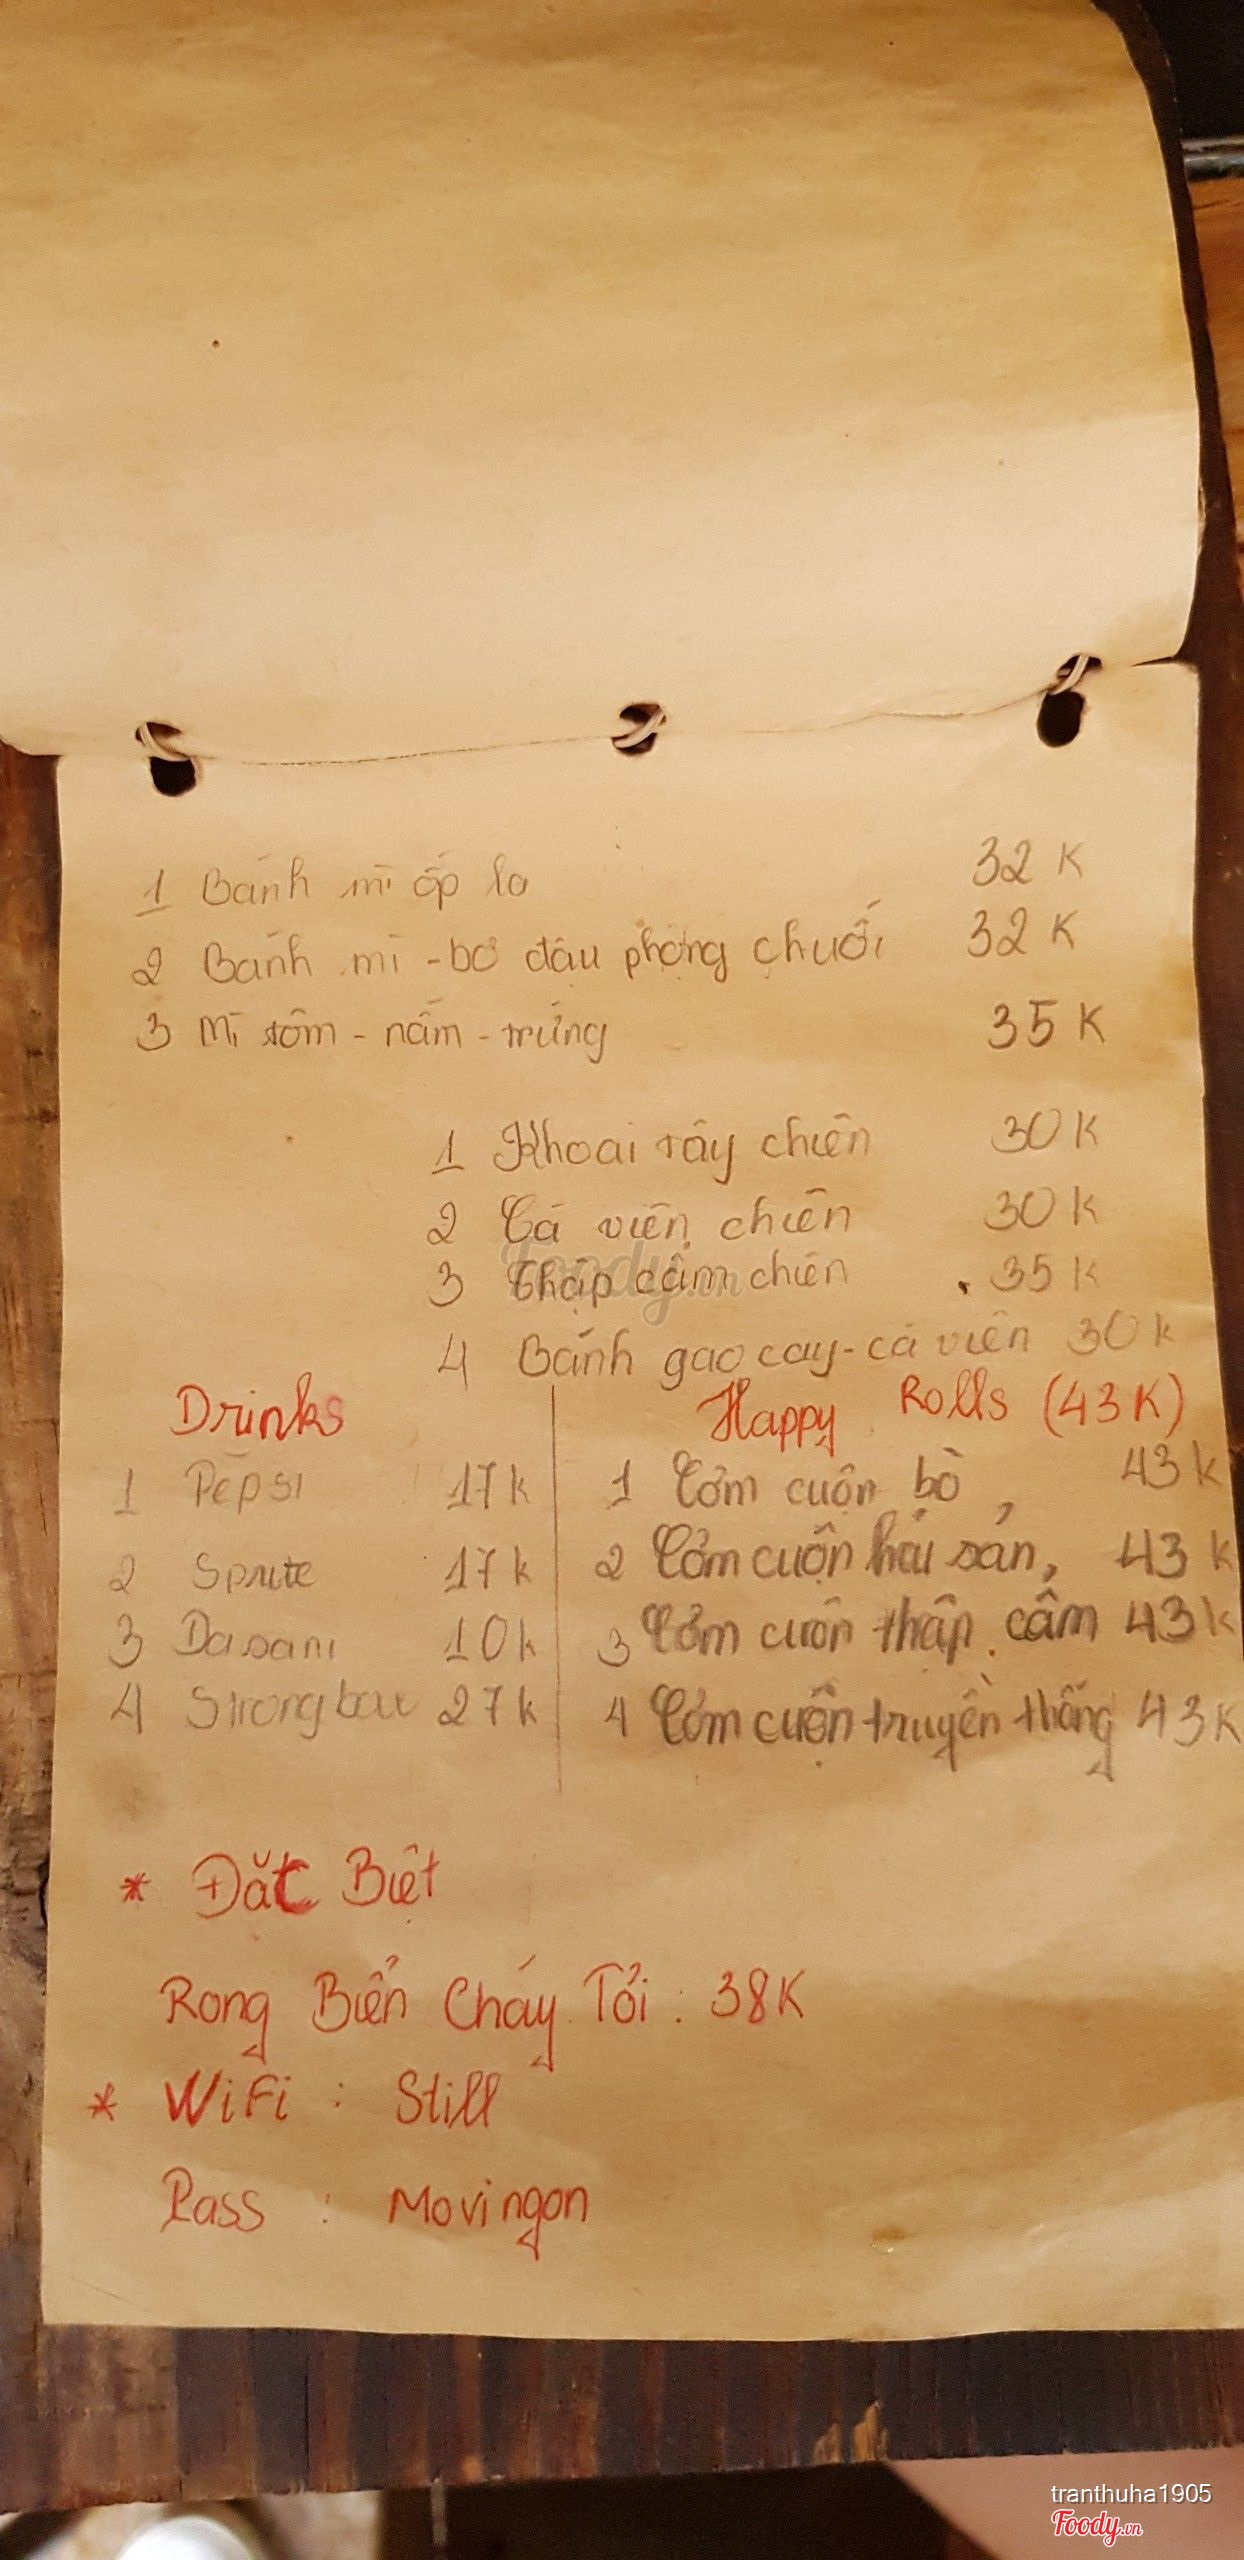 1 Bánh mì ốp la 32 K
2 Bánh mì - bơ đậu phộng chuối 32 K
3 Mì tôm - nấm - trứng 35 K
1 Khoai tây chiên 30 K
2 Cá viên chiên 30 K
3 Thập cẩm chiên 35 K
4 Bánh gạo cay - cá viên 30 K
Drinks
1 Pepsi 17k
2 Sprite 17k
3 Dasani 10k
4 Strongbow 27k
Happy Rolls (43K)
1 Cơm cuộn bò 43k
2 Cơm cuộn hải sản, 43 k
3 Cơm cuộn thập cẩm 43k
4 Cơm cuộn truyền thống 43K
* Đặc Biệt
Rong Biển Cháy Tỏi : 38K
* WiFi : Still
Pass : Movingon
Foody.vn
tranthuha1905
Foody.vn